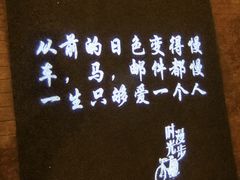 从前的日色变得慢
车，马，邮件都慢
一生只够爱一个人
时光漫步